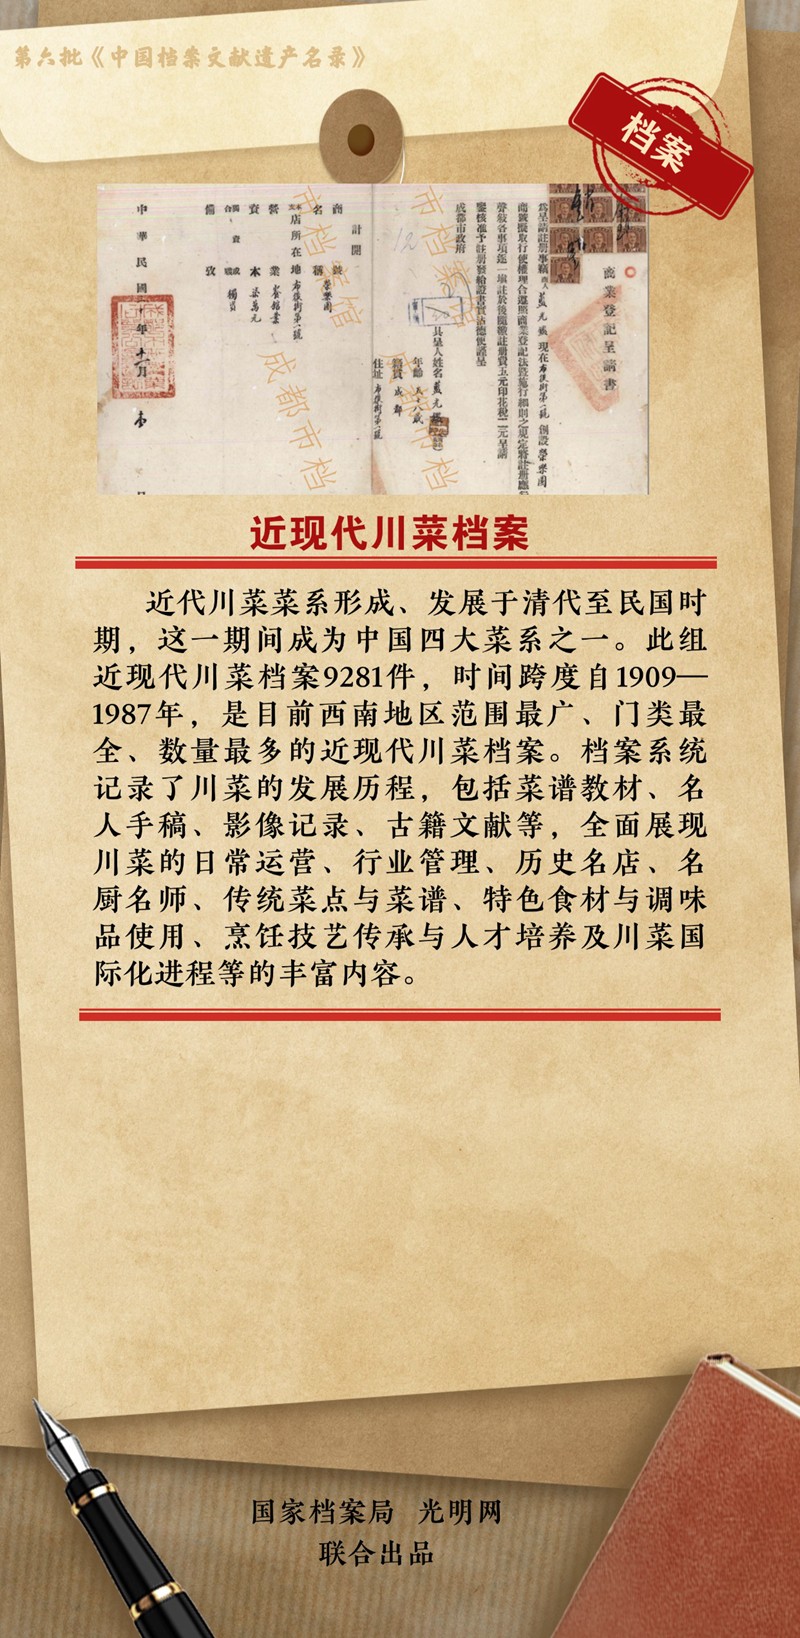 第六批《中国档案文献遗产名录》
档案
商業登記呈請書
成都市政府
計開
商號名稱 榮樂園
營業
資本
備攷
中華民國
市档案馆
市档案馆
成都市档
成都市档
近现代川菜档案
近代川菜菜系形成、发展于清代至民国时
期，这一期间成为中国四大菜系之一。此组
近现代川菜档案9281件，时间跨度自1909—
1987年，是目前西南地区范围最广、门类最
全、数量最多的近现代川菜档案。档案系统
记录了川菜的发展历程，包括菜谱教材、名
人手稿、影像记录、古籍文献等，全面展现
川菜的日常运营、行业管理、历史名店、名
厨名师、传统菜点与菜谱、特色食材与调味
品使用、烹饪技艺传承与人才培养及川菜国
际化进程等的丰富内容。
国家档案局 光明网
联合出品